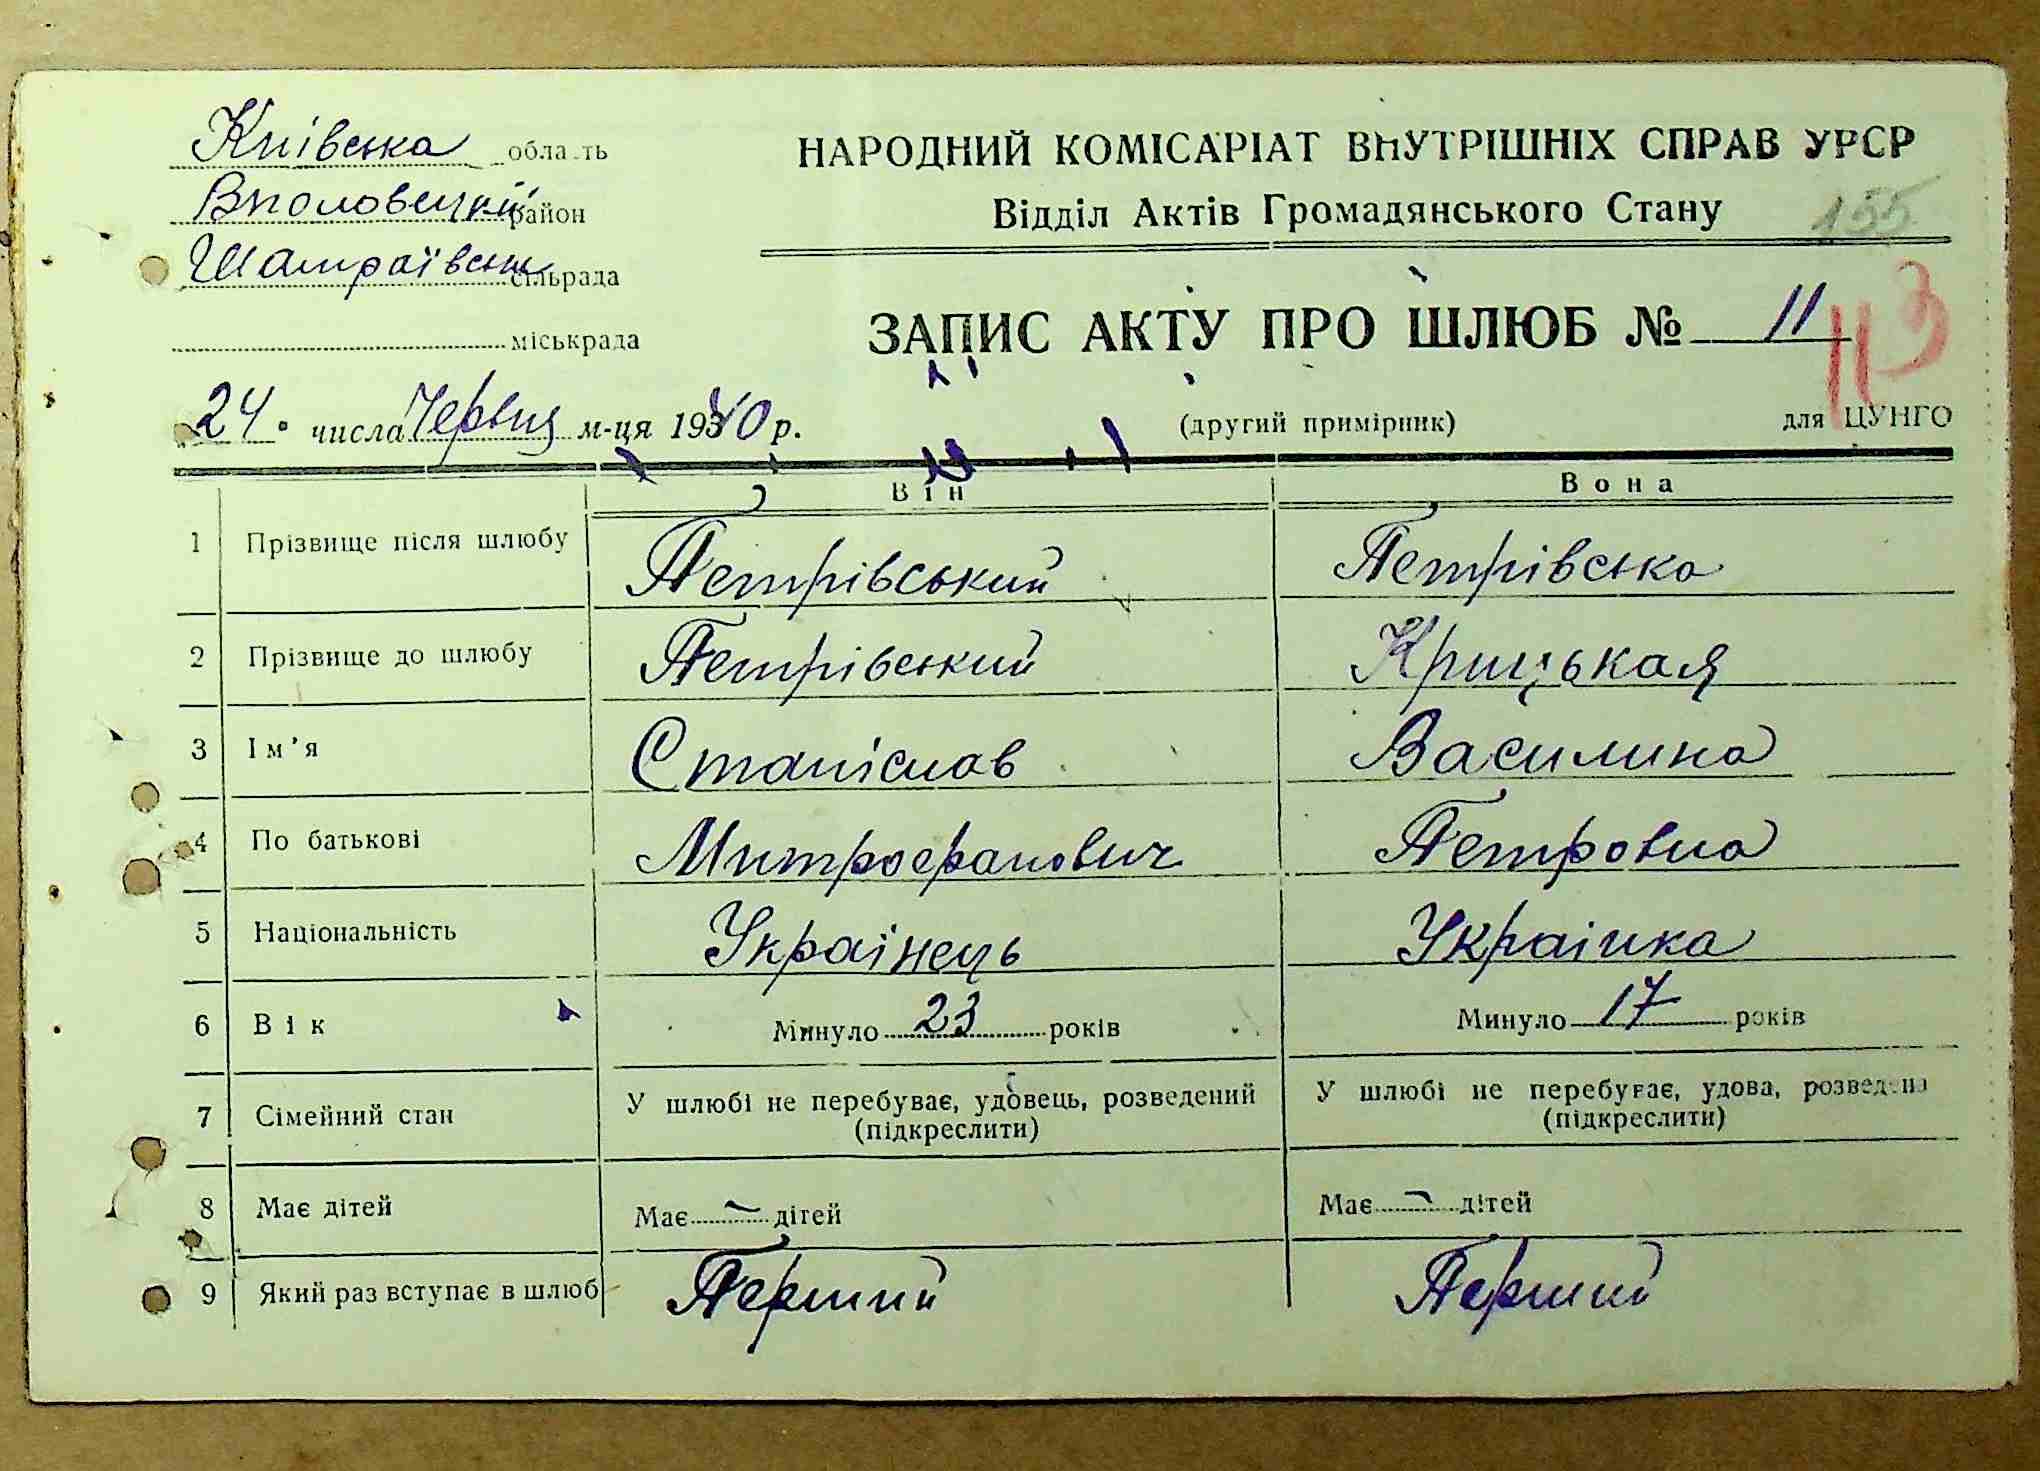 Київська область
Вполовецький район
Шамраївська сільрада
міськрада
НАРОДНИЙ КОМІСАРІАТ ВНУТРІШНІХ СПРАВ УРСР
Відділ Актів Громадянського Стану
155
ЗАПИС АКТУ ПРО ШЛЮБ № 11
113
24 числа Червня м-ця 1940 р.
(другий примірник)
для ЦУНГО
Він Вона
1 Прізвище після шлюбу Петрівський Петрівська
2 Прізвище до шлюбу Петрівський Крицькая
3 Ім'я Станіслав Василина
4 По батькові Митрофанович Петровна
5 Національність Українець Українка
6 Вік Минуло 23 років Минуло 17 років
7 Сімейний стан У шлюбі не перебуває, удовець, розведений У шлюбі не перебуває, удова, розведена
(підкреслити) (підкреслити)
8 Має дітей Має — дітей Має — дітей
9 Який раз вступає в шлюб Перший Перший